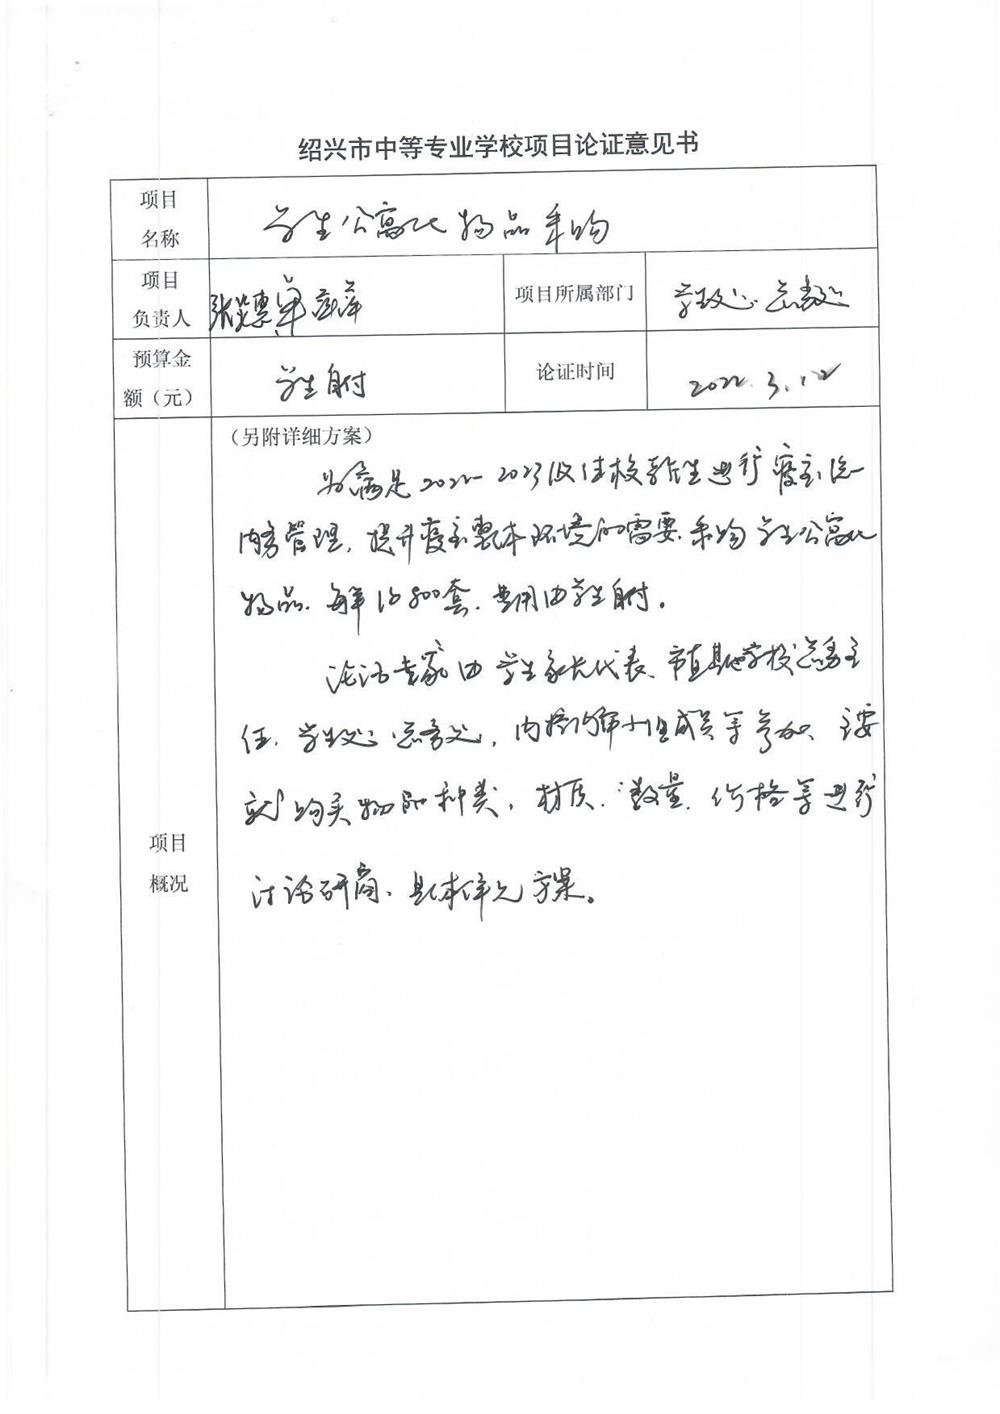 绍兴市中等专业学校项目论证意见书
项目
名称
学生公寓化物品采购
项目
负责人
项目所属部门
学生处 总务处
预算金
额（元）
学生自付
论证时间
2022.3.12
项目
概况
（另附详细方案）
为满足2022-2023级住校新生进行寝室化
内务管理，提升寝室整体环境的需要，采购学生公寓化
物品，每年约800套，费用由学生自付。
论证专家由学生家长代表、市直其他学校总务主
任、学生处、总务处，内控内审小组成员等参加、主要
就购买物品种类，材质、数量、价格等进行
讨论研商、具体详见方案。